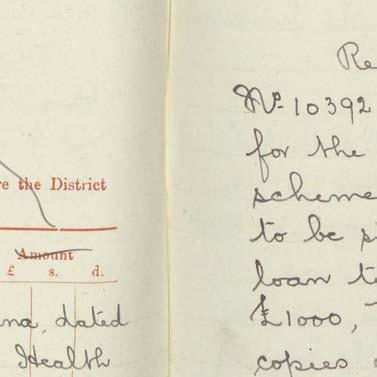 re the District
Amount
£ s. d.
na, dated
Health
Re
No. 10392
for the
scheme
to be
loan
£1000,
copies